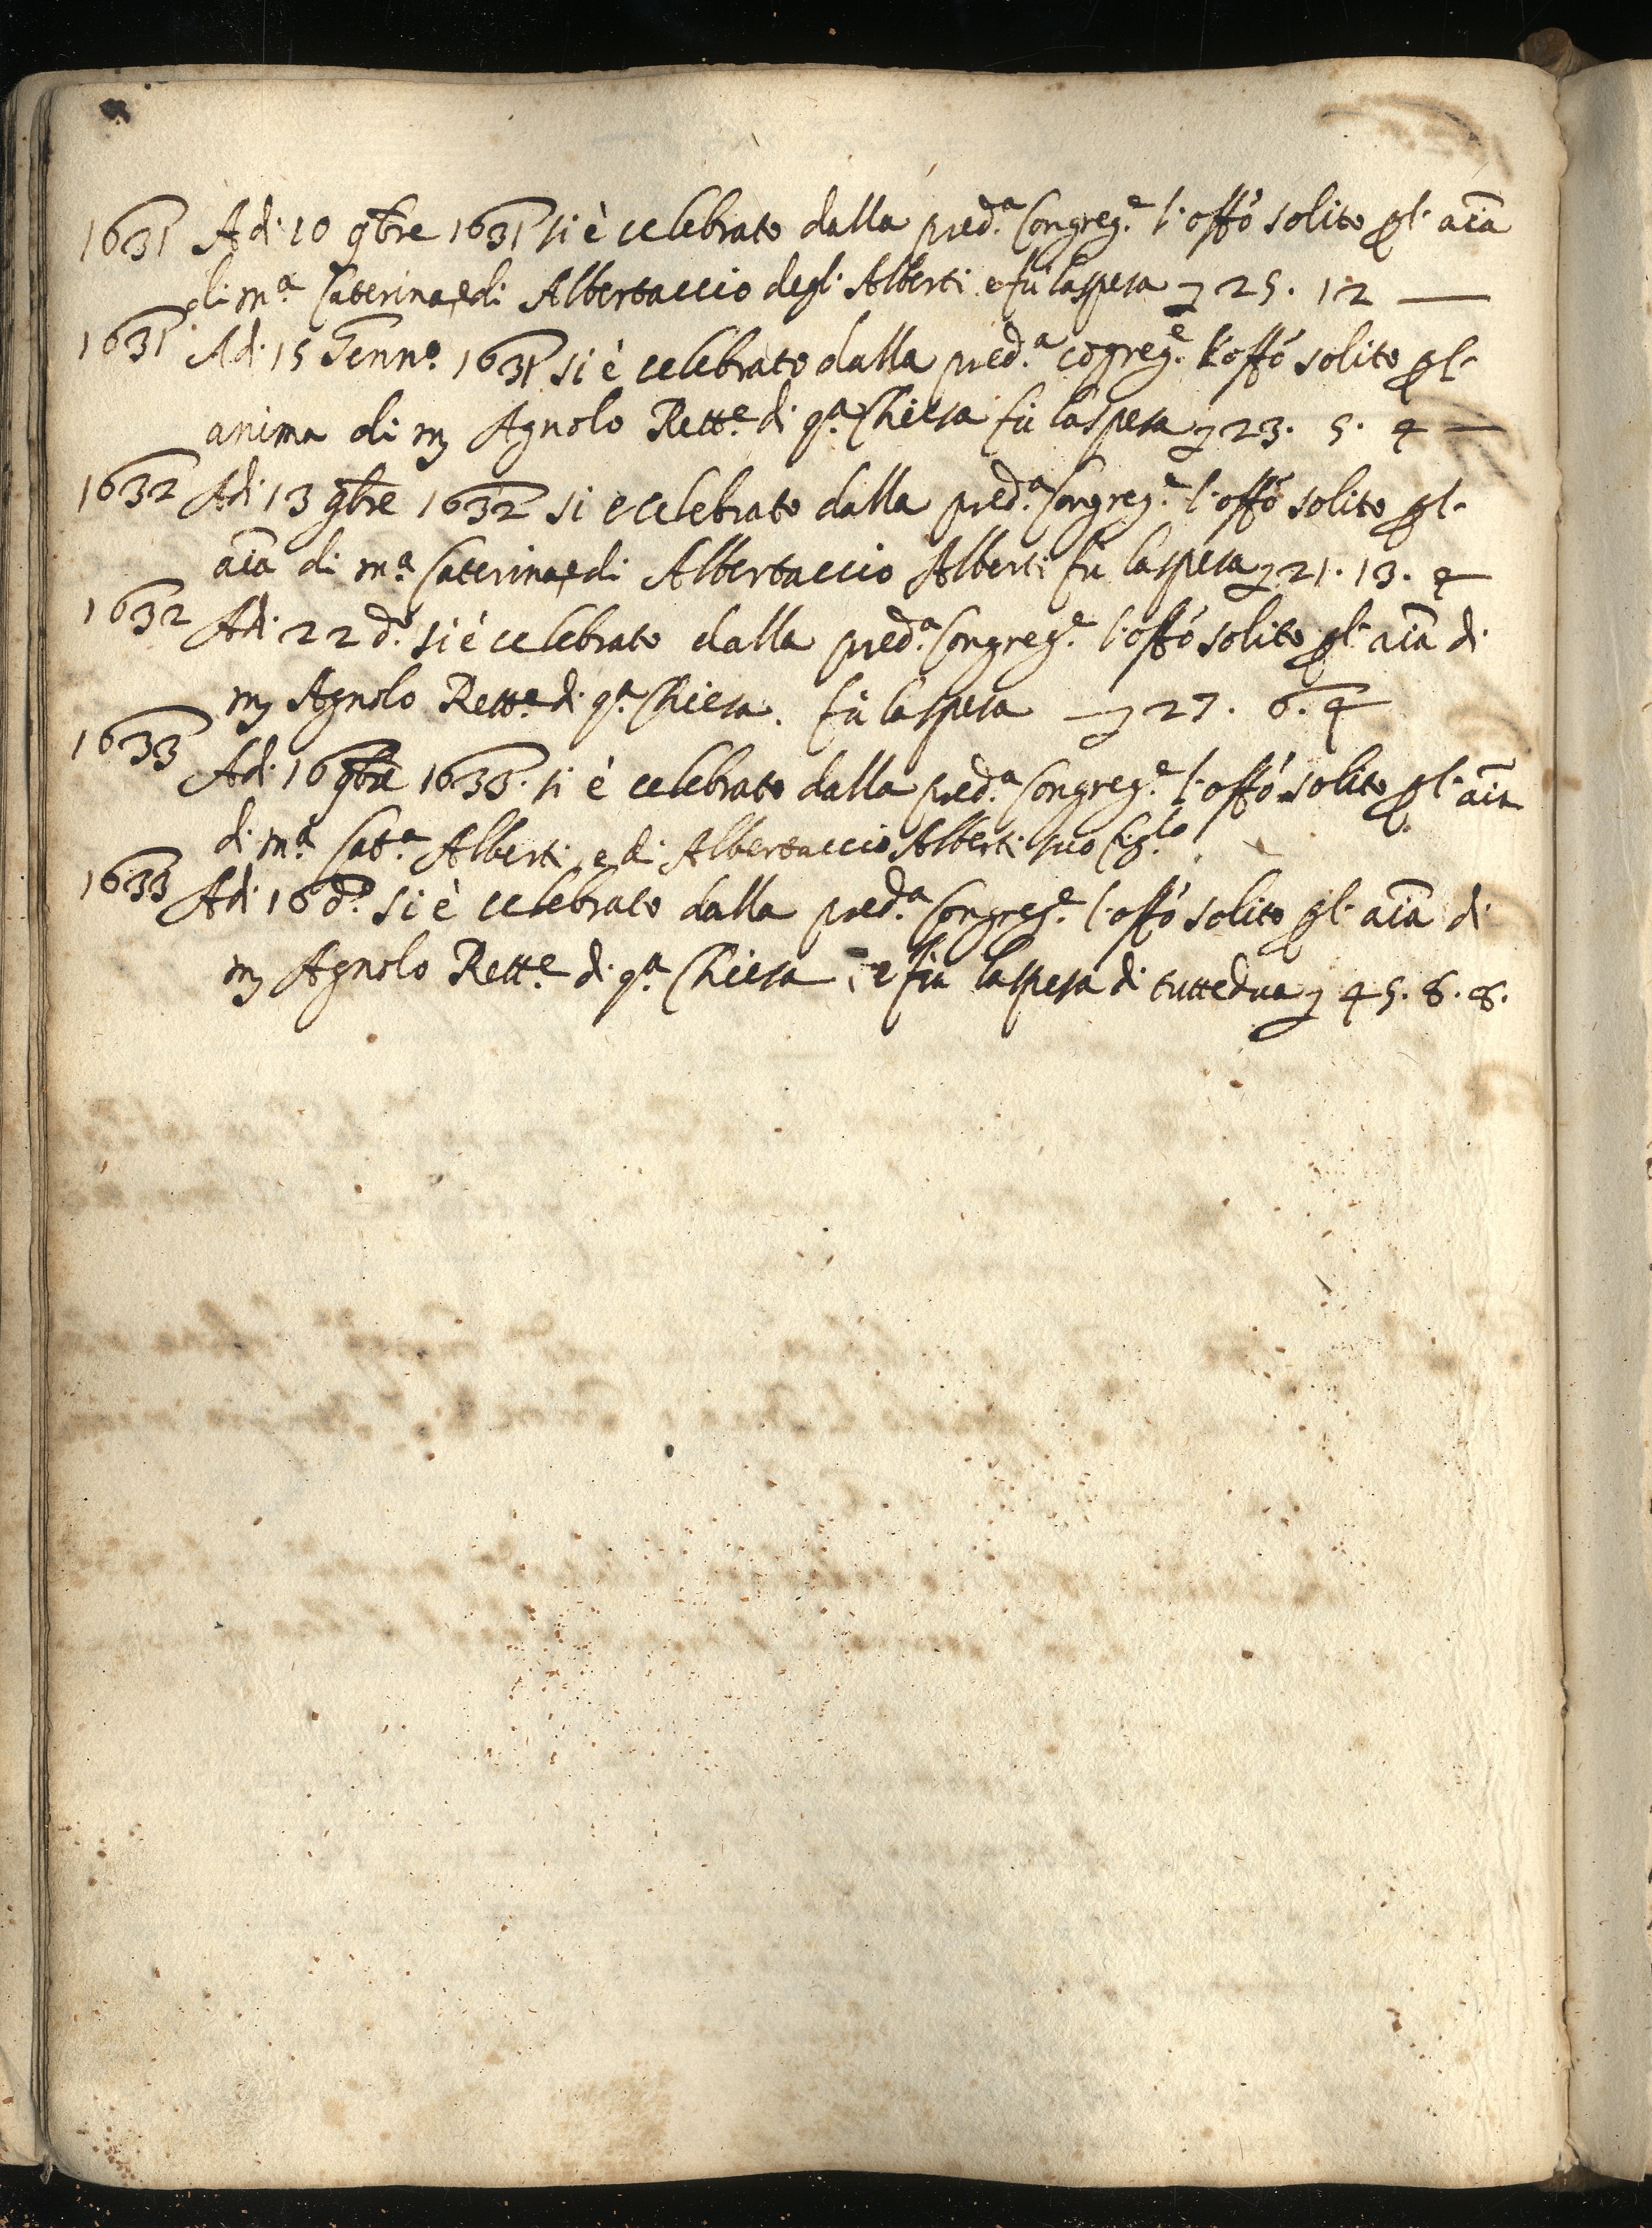 1631 Adi 10 9bre 1631 si è celebrato dalla pred.a Congreg.e l'offo solito pl' aīa
di m.a Caterina, e di Albertaccio degl' Alberti e fù la spesa 25. 12 —
1631 Adi 15 Genn.o 1631 si è celebrato dalla pred.a cōgreg.e l'offo solito pl'
anima di m Agnolo Rett.e di q.a Chiesa fù la spesa 23. 5. 4 —
1632 Adi 13 9bre 1632 si e celebrato dalla pred.a Congreg.e l'offo solito pl'
aīa di m.a Caterina, e di Albertaccio Alberti fù la spesa 21. 13. 4
1632 Adi 22 d.o si è celebrato dalla pred.a Congreg.e l'offo solito pl' aīa di
m Agnolo Rett.e di q.a Chiesa. fù la spesa — 27. 6. 4
1633 Adi 16 9bre 1633. si è celebrato dalla pred.a Congreg.e l'offo solito pl' aīa
di m.a Cat.a Alberti, e di Albertaccio Alberti suo fig.lo
1633 Adi 16 d.o si è celebrato dalla pred.a Congreg.e l'offo solito pl' aīa di
m Agnolo Rett.e di q.a Chiesa, e fù la spesa di tuttedua 45. 8. 8.